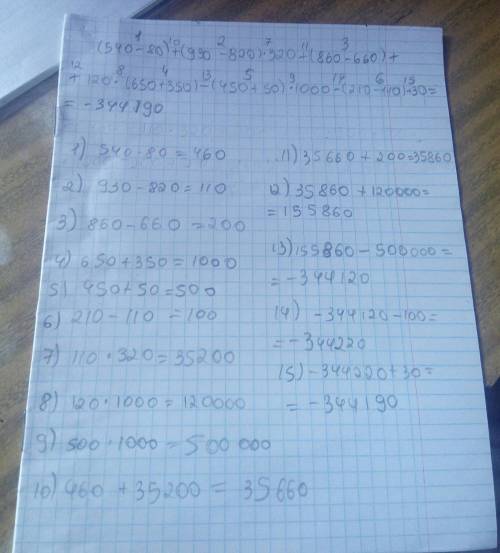 (540-80)+(930-820)·320+(860-660)+
+120·(650+350)-(450+50)·1000-(210-110)+30=
=-344190
1) 540-80=460
2) 930-820=110
3) 860-660=200
4) 650+350=1000
5) 450+50=500
6) 210-110=100
7) 110·320=35200
8) 120·1000=120000
9) 500·1000=500000
10) 460+35200=35660
11) 35660+200=35860
12) 35860+120000=
=155860
13) 155860-500000=
=-344120
14) -344120-100=
=-344220
15) -344220+30=
=-344190